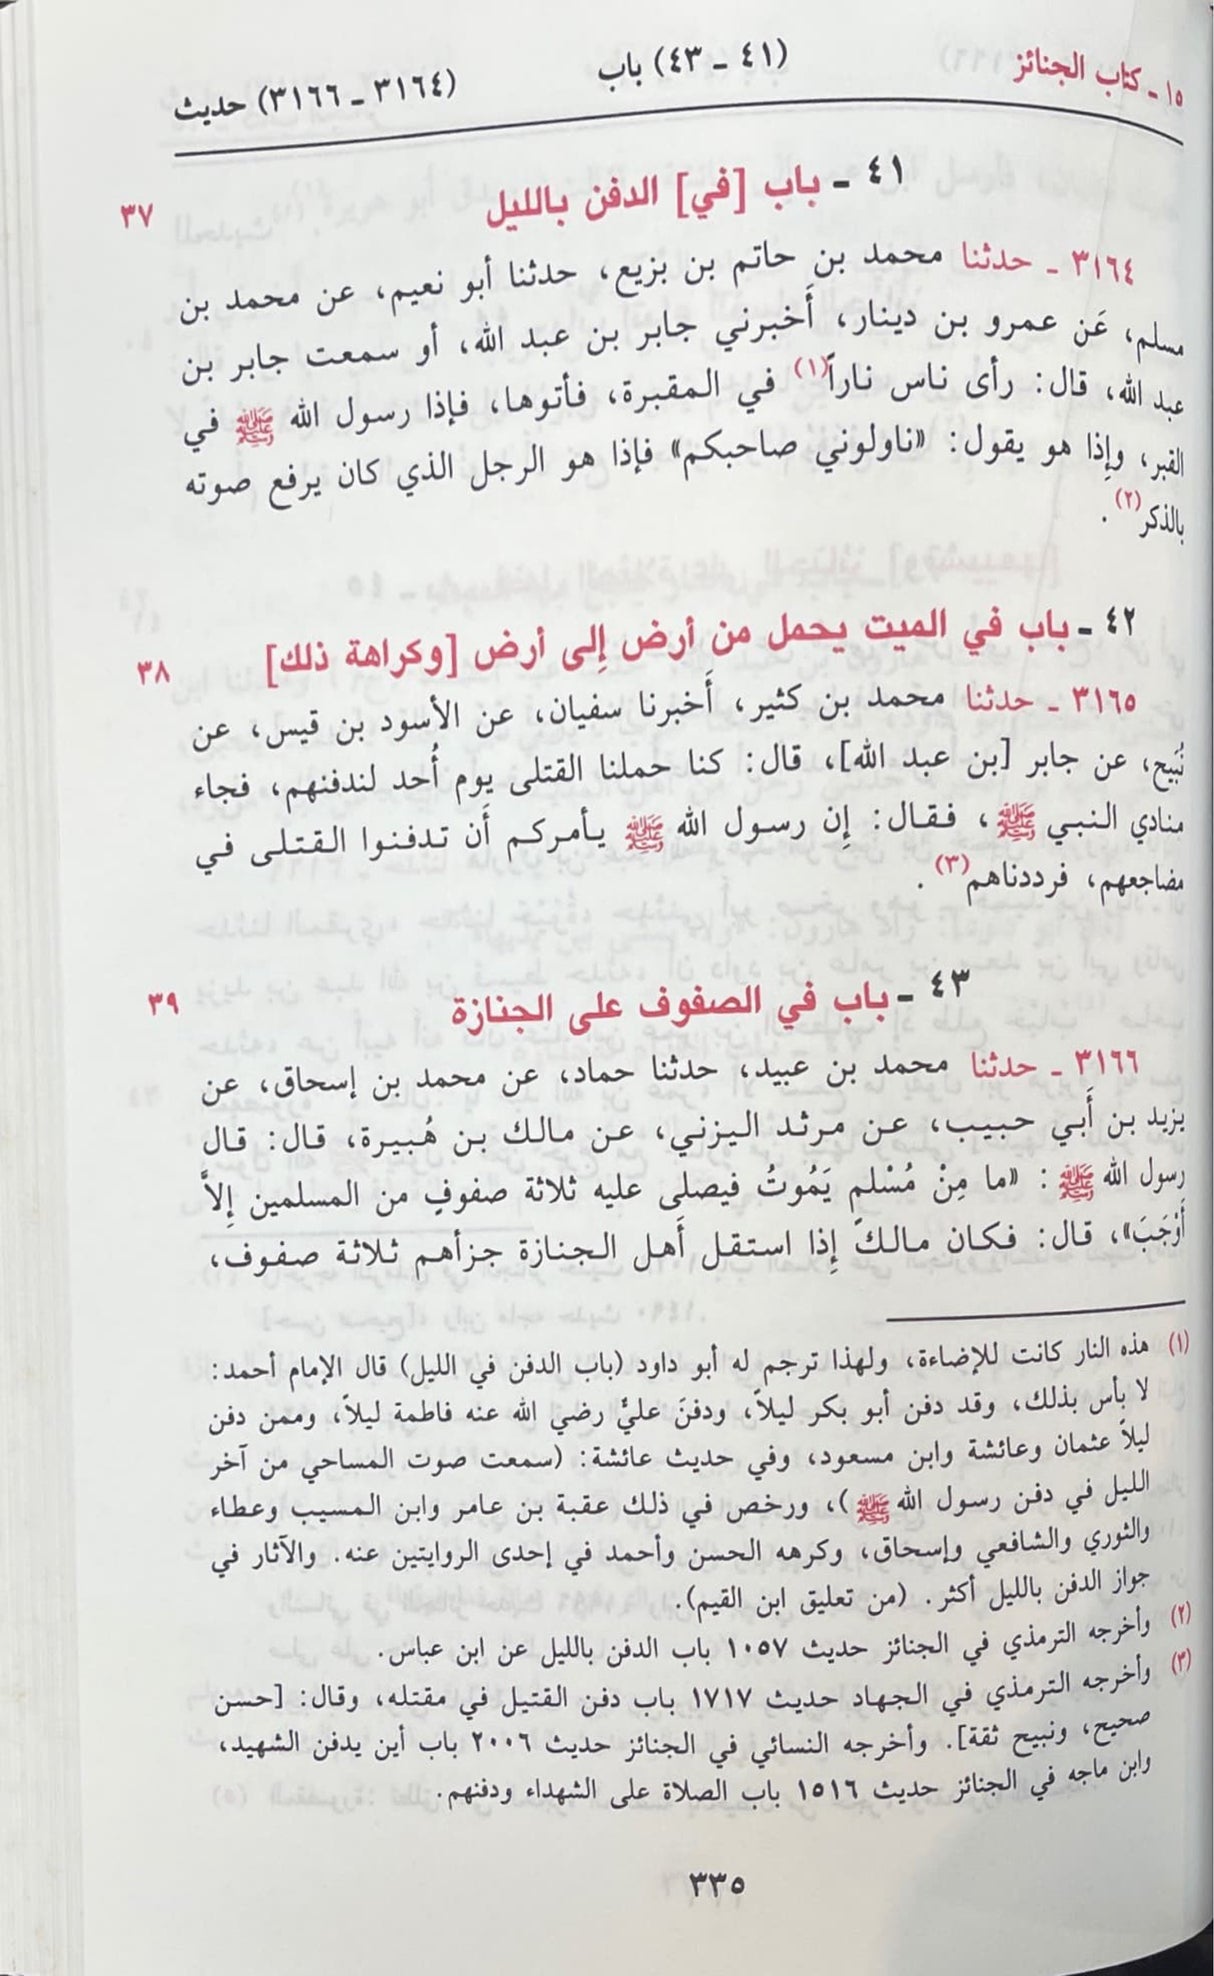 ١٥ ـ كتاب الجنائز (٤١ ـ ٤٣) باب (٣١٦٤ ـ ٣١٦٦) حديث
٤١ ـ باب [في] الدفن بالليل ٣٧
٣١٦٤ ـ حدثنا محمد بن حاتم بن بزيع، حدثنا أبو نعيم، عن محمد بن
مسلم، عَن عمرو بن دينار، أَخبرني جابر بن عبد الله، أو سمعت جابر بن
عبد الله، قال: رأى ناس ناراً(١) في المقبرة، فأتوها، فإذا رسول الله ﷺ في
القبر، وإِذا هو يقول: «ناولوني صاحبكم» فإذا هو الرجل الذي كان يرفع صوته
بالذكر(٢).
٤٢ ـ باب في الميت يحمل من أرض إِلى أرض [وكراهة ذلك] ٣٨
٣١٦٥ ـ حدثنا محمد بن كثير، أَخبرنا سفيان، عن الأسود بن قيس، عن
نُبَيح، عن جابر [بن عبد الله]، قال: كنا حملنا القتلى يوم أُحد لندفنهم، فجاء
منادي النبي ﷺ، فقال: إِن رسول الله ﷺ يأمركم أَن تدفنوا القتلى في
مضاجعهم، فرددناهم(٣).
٤٣ ـ باب في الصفوف على الجنازة ٣٩
٣١٦٦ ـ حدثنا محمد بن عبيد، حدثنا حماد، عن محمد بن إسحاق، عن
يزيد بن أَبي حبيب، عن مرثد اليزني، عن مالك بن هُبيرة، قال: قال
رسول الله ﷺ: «ما مِنْ مُسْلمٍ يَمُوتُ فيصلي عليه ثلاثة صفوفٍ من المسلمين إِلاَّ
أَوْجَبَ»، قال: فكان مالكٌ إِذا استقل أَهل الجنازة جزأهم ثلاثة صفوف،
(١) هذه النار كانت للإضاءة، ولهذا ترجم له أبو داود (باب الدفن في الليل) قال الإمام أحمد:
لا بأس بذلك، وقد دفن أبو بكر ليلاً، ودفنَ عليٌّ رضي الله عنه فاطمة ليلاً، وممن دفن
ليلاً عثمان وعائشة وابن مسعود، وفي حديث عائشة: (سمعت صوت المساحي من آخر
الليل في دفن رسول الله ﷺ)، ورخص في ذلك عقبة بن عامر وابن المسيب وعطاء
والثوري والشافعي وإسحاق، وكرهه الحسن وأحمد في إحدى الروايتين عنه. والآثار في
جواز الدفن بالليل أكثر. (من تعليق ابن القيم).
(٢) وأخرجه الترمذي في الجنائز حديث ١٠٥٧ باب الدفن بالليل عن ابن عباس.
(٣) وأخرجه الترمذي في الجهاد حديث ١٧١٧ باب دفن القتيل في مقتله، وقال: [حسن
صحيح، ونبيح ثقة]. وأخرجه النسائي في الجنائز حديث ٢٠٠٦ باب أين يدفن الشهيد،
وابن ماجه في الجنائز حديث ١٥١٦ باب الصلاة على الشهداء ودفنهم.
٣٣٥